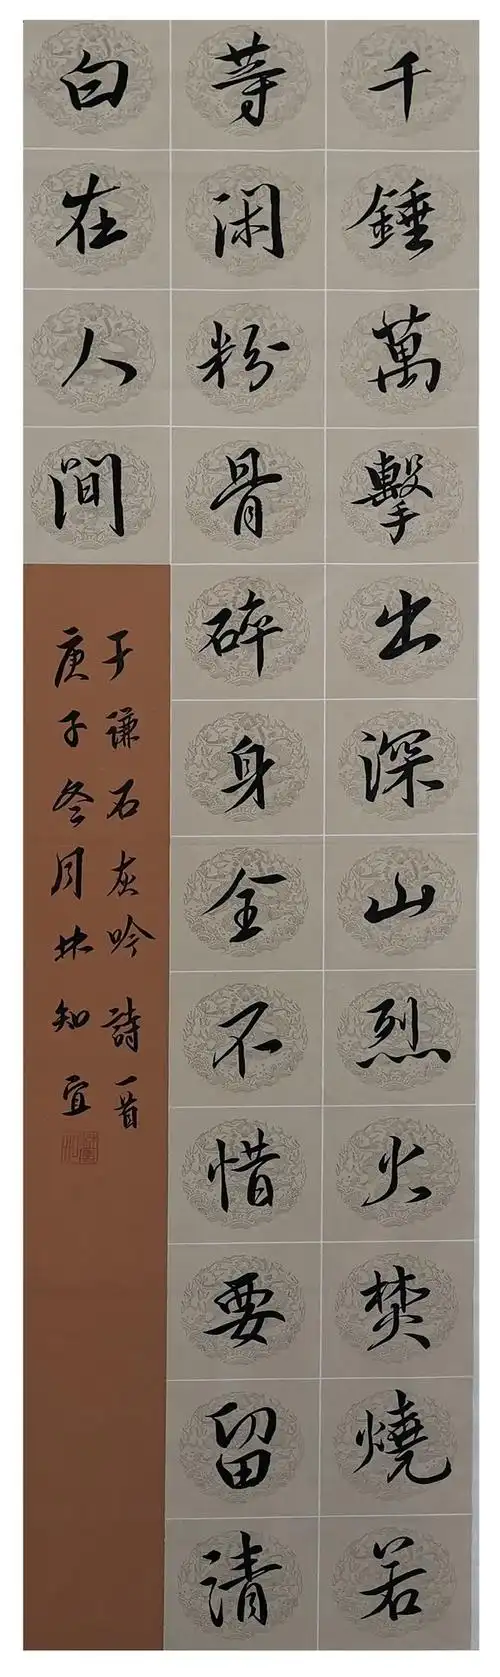 千錘萬擊出深山烈火焚燒若
等閑粉骨碎身全不惜要留清
白在人間
于謙石灰吟詩一首
庚子冬月林知宜